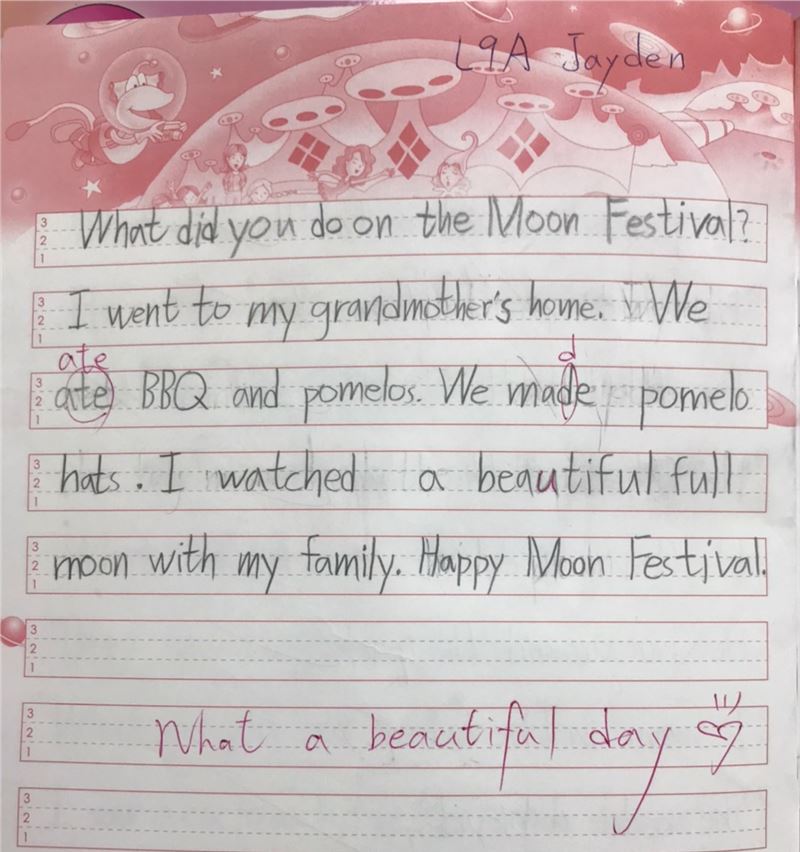 L9A Jayden
3
2
1
What did you do on the Moon Festival?
3
2
1
I went to my grandmother's home. We
ate
d
3
2
1
ate BBQ and pomelos. We made pomelo
3
2
1
hats. I watched a beautiful full
3
2
1
moon with my family. Happy Moon Festival.
3
2
1
3
2
1
What a beautiful day
3
2
1